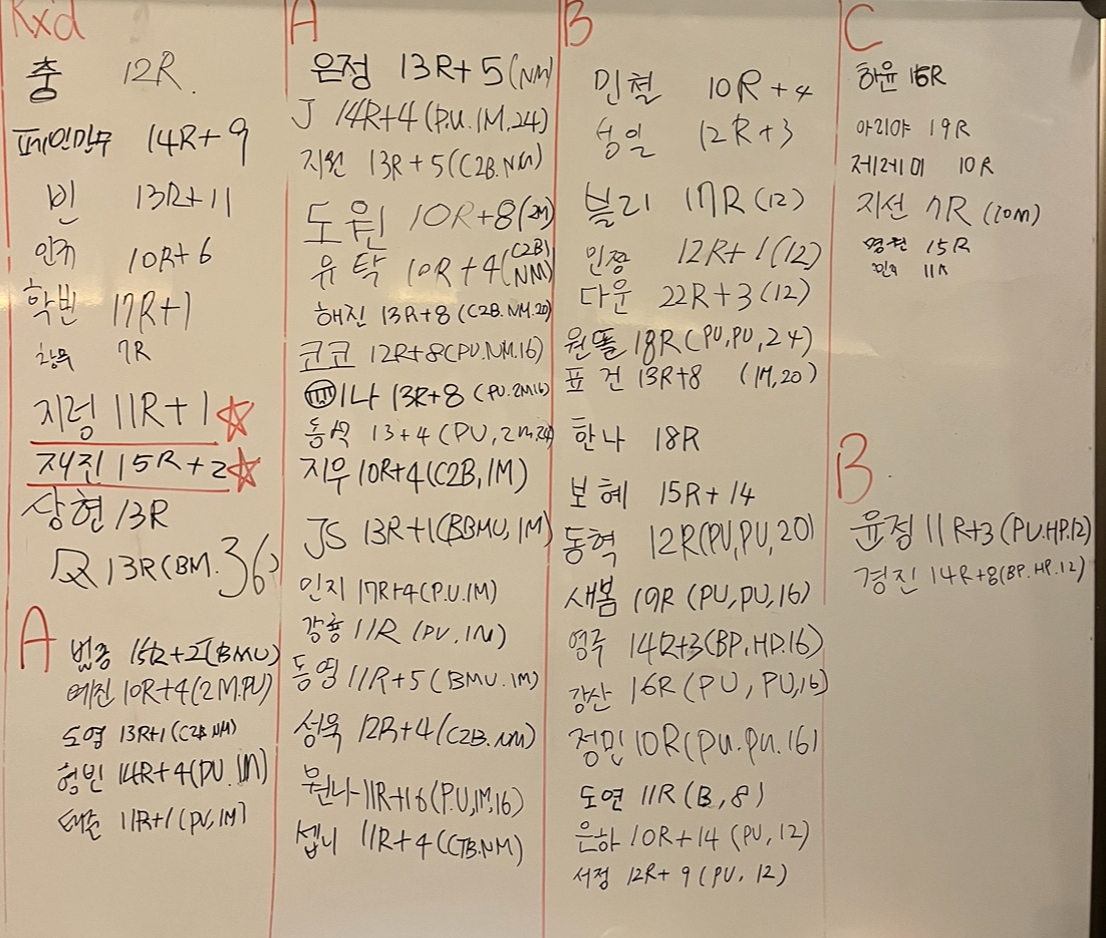 Rxd
충 12R.
페인만두 14R+9
빈 13R+11
인규 10R+6
학빈 17R+1
창욱 7R
지령 11R+1 ☆
재진 15R+2 ☆
상현 13R
Q 13R(BM.36)
A
범종 15R+2(BMU)
예진 10R+4(2M.PU)
도영 13R+1(C2B.NM)
형빈 14R+4(PU.1M)
태준 11R+1(PU,1M)
A
은정 13R+5(NM)
J 14R+4(P.U.1M,24)
지원 13R+5(C2B.NM)
도원 10R+8(2M)
유탁 10R+4(C2B)(NM)
해진 13R+8(C2B.NM.20)
코코 12R+8(PU.NM.16)
미나 13R+8(PU.2M16)
동석 13+4(PU,2M,24)
지우 10R+4(C2B,1M)
JS 13R+1(BBMU,1M)
인지 17R+4(P.U.1M)
강룡 11R(PU.1M)
동영 11R+5(BMU.1M)
성욱 12R+4(C2B.NM)
뭔나 11R+16(P.U,1M,16)
셉니 11R+4(CTB.NM)
B
민철 10R+4
성일 12R+3
블리 17R(12)
민장 12R+1(12)
다운 22R+3(12)
원똘 18R(PU,PU,24)
표건 13R+8 (1M,20)
한나 18R
보혜 15R+14
동혁 12R(PU,PU,20)
새봄 19R(PU,PU,16)
영주 14R+3(BP.HP.16)
강산 16R(PU,PU,16)
정민 10R(PU.PU.16)
도연 11R(B,8)
은하 10R+14(PU,12)
서정 12R+9(PU,12)
C
하윤 15R
아리야 19R
제레미 10R
지선 7R(20M)
영현 15R
11R
B
윤정 11R+3(PU.HP.12)
경진 14R+8(BP.HP.12)